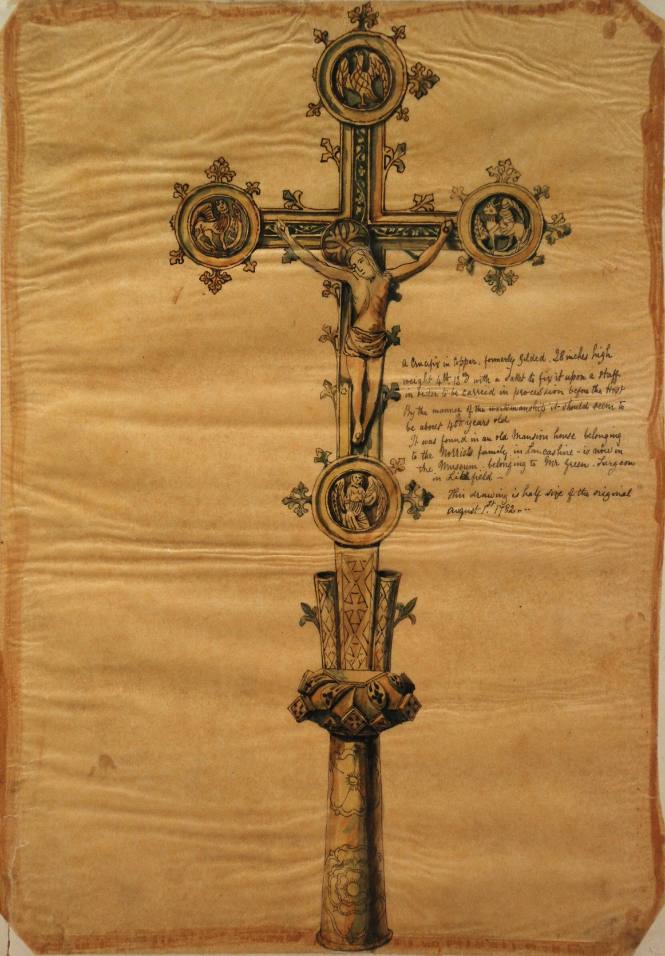 A Crucifix in Copper, formerly gilded. 28 inches high
weight 4lb 12 with a socket to fix it upon a staff
in order to be carried in procession before the Host
By the manner of the workmanship it should seem to
be about 400 years old
It was found in an old Mansion house belonging
to the Norriss family in Lancashire - is now in
the Museum. belonging to Mr Green. Surgeon
in Lichfield -
This drawing is half size of the original
August 1st 1782